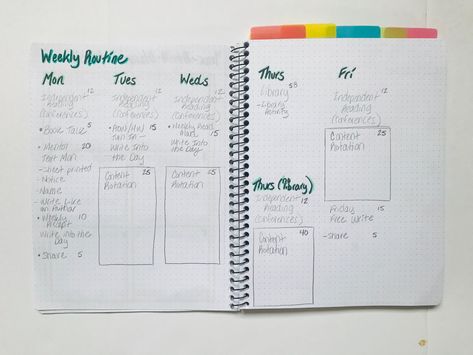 Weekly Routine
Mon
12
Independent
Reading
(Conferences)
• Book Talk 5
• Mentor 20
Text Mon
- sheet printed
- Notice
- Name
- Write Like
an Author
• Weekly 10
Write into the
Day
• Share 5
Tues
12
Independent
Reading
(Conferences)
15
Turn In -
Write Into
the Day
Content 25
Rotation
Weds
12
Independent
Reading
(Conferences)
• Weekly Read 15
Write Into
the Day
Content 25
Rotation
Thurs
58
Library
- Library
Activity
Thurs (library)
Independent 12
Reading
(Conferences)
Content 40
Rotation
Fri
12
Independent
Reading
(Conferences)
Content 25
Rotation
Friday 15
Free Write
- Share 5